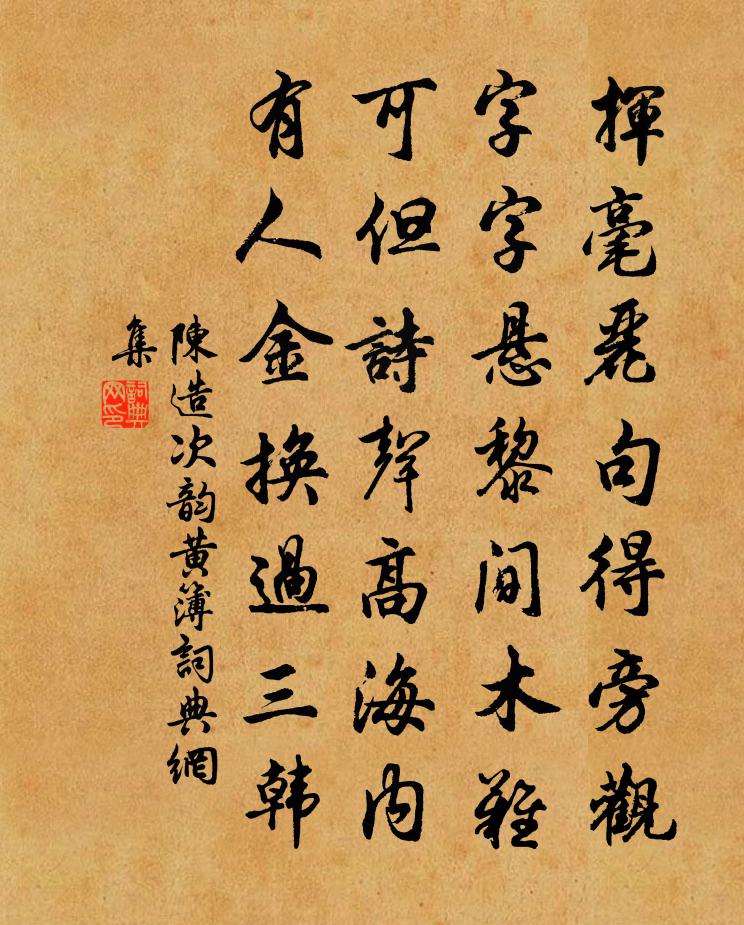 揮毫麗句得旁觀
字字悬黎間木難
可但詩聲高海内
有人金換過三韩
陳造次韵黄簿詞典網
集
詞典網印